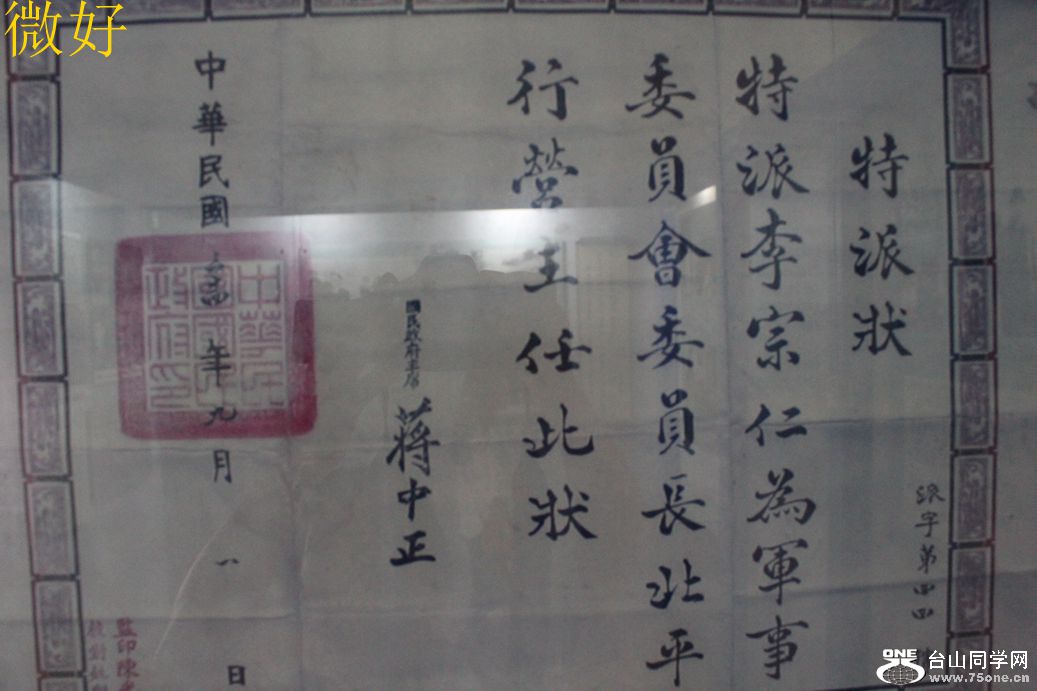 微好
特派狀
派字第四四
特派李宗仁為軍事
委員會委員長北平
行營主任此狀
國民政府主席
蔣中正
中華民國 年九月一日
中華民國政府印
監印陳
校對
ONE
台山同学网
www.75one.cn